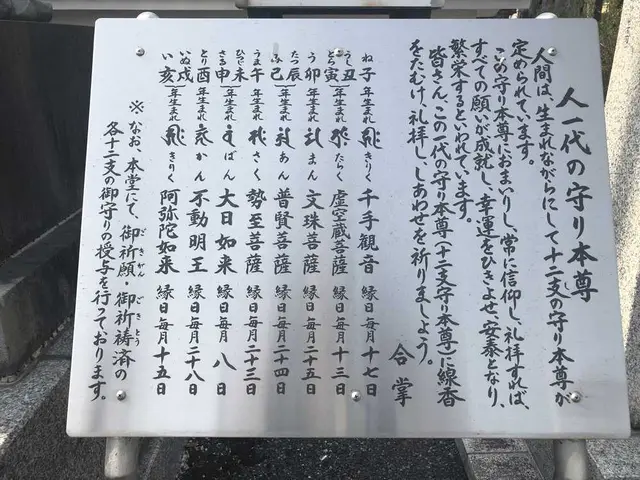 人一代の守り本尊
人間は、生まれながらにして十二支の守り本尊が
定められています。
この守り本尊におまいりし、常に信仰し、礼拝すれば、
すべての願いが成就し、幸運をひきよせ、安泰となり、
繁栄するといわれています。
皆さん、この一代の守り本尊(十二支守り本尊)に線香
をたむけ、礼拝し、しあわせを祈りましょう。
合掌
ね子年生まれ きりく 千手観音 縁日毎月十七日
うし丑とら寅年生まれ たらく 虚空蔵菩薩 縁日毎月十三日
う卯年生まれ まん 文珠菩薩 縁日毎月二十五日
たつ辰み巳年生まれ あん 普賢菩薩 縁日毎月二十四日
うま午年生まれ さく 勢至菩薩 縁日毎月二十三日
ひつじ未さる申年生まれ ばん 大日如来 縁日毎月八日
とり酉年生まれ かん 不動明王 縁日毎月二十八日
いぬ戌い亥年生まれ きりく 阿弥陀如来 縁日毎月十五日
※なお、本堂にて、御祈願・御祈祷済の
各十二支の御守りの授与を行っております。